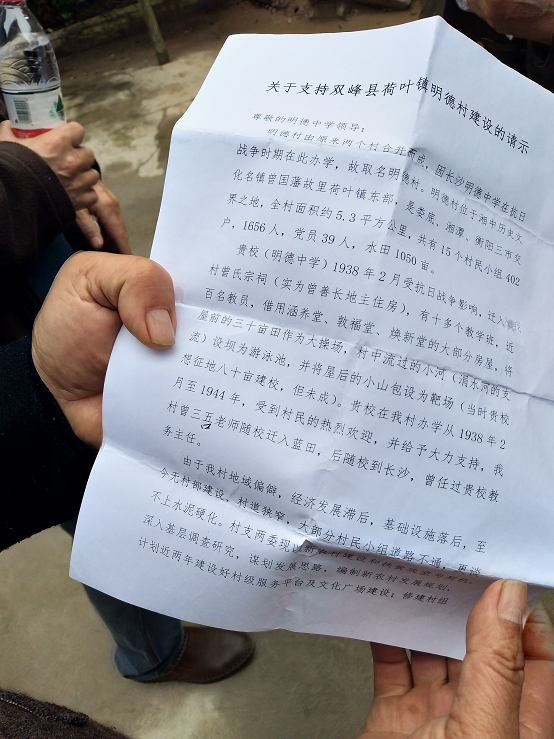 关于支持双峰县荷叶镇明德村建设的请示
尊敬的明德中学领导：
明德村由原来两个村合并而成，因长沙明德中学在抗日
战争时期在此办学，故取名明德村。明德村位于湘中历史文
化名镇曾国藩故里荷叶镇东部，是娄底、湘潭、衡阳三市交
界之地，全村面积约5.3平方公里，共有15个村民小组402
户，1656人，党员39人，水田1050亩。
贵校（明德中学）1938年2月受抗日战争影响，迁入
村曾氏宗祠（实为曾善长地主住房），有十多个教学班，近
百名教员，借用涵养堂、敦福堂、焕新堂的大部分房屋，将
屋前的三十亩田作为大操场，村中流过的小河（涓水河的支
流）设坝为游泳池，并将屋后的小山包设为靶场（当时贵校
想征地八十亩建校，但未成）。贵校在我村办学从1938年2
月至1944年，受到村民的热烈欢迎，并给予大力支持，我
村曾三五老师随校迁入蓝田，后随校到长沙，曾任过贵校教
务主任。
由于我村地域偏僻，经济发展滞后，基础设施落后，至
今无村部建设，村道狭窄，大部分村民小组道路不通，更谈
不上水泥硬化。村支两委现以新农村建设和
深入基层调查研究，谋划发展思路，编制新农村发展规划，
计划近两年建设好村级服务平台及文化广场建设；修建村组